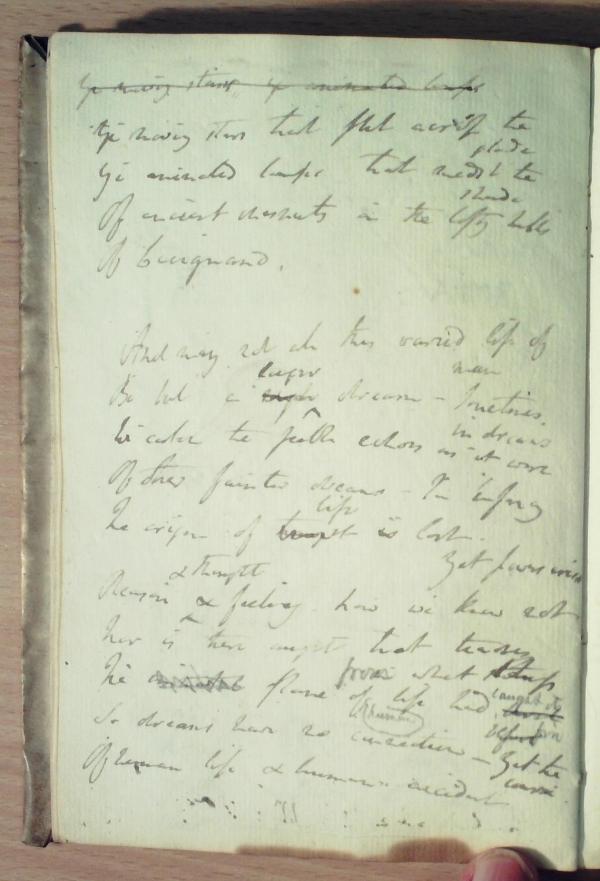 Ye moving stars, ye animated lamps
Ye moving stars that flit across the
glade
Ye animated lamps that midst the
shade
Of ancient chesnuts in the lofty hills
Of
And may not all this varied life of
man
Be but a larger dream - Sometimes
in dreams
the echoes as it were
Of other fainter dreams - In infancy
life
The origin of is lost.
Yet powers arise
& thought
Reason & feeling how we know not
Nor is there aught that teaches
from what
The flame of life had caught its
So dreams have no connection - Yet the
course
Of human life & human accident